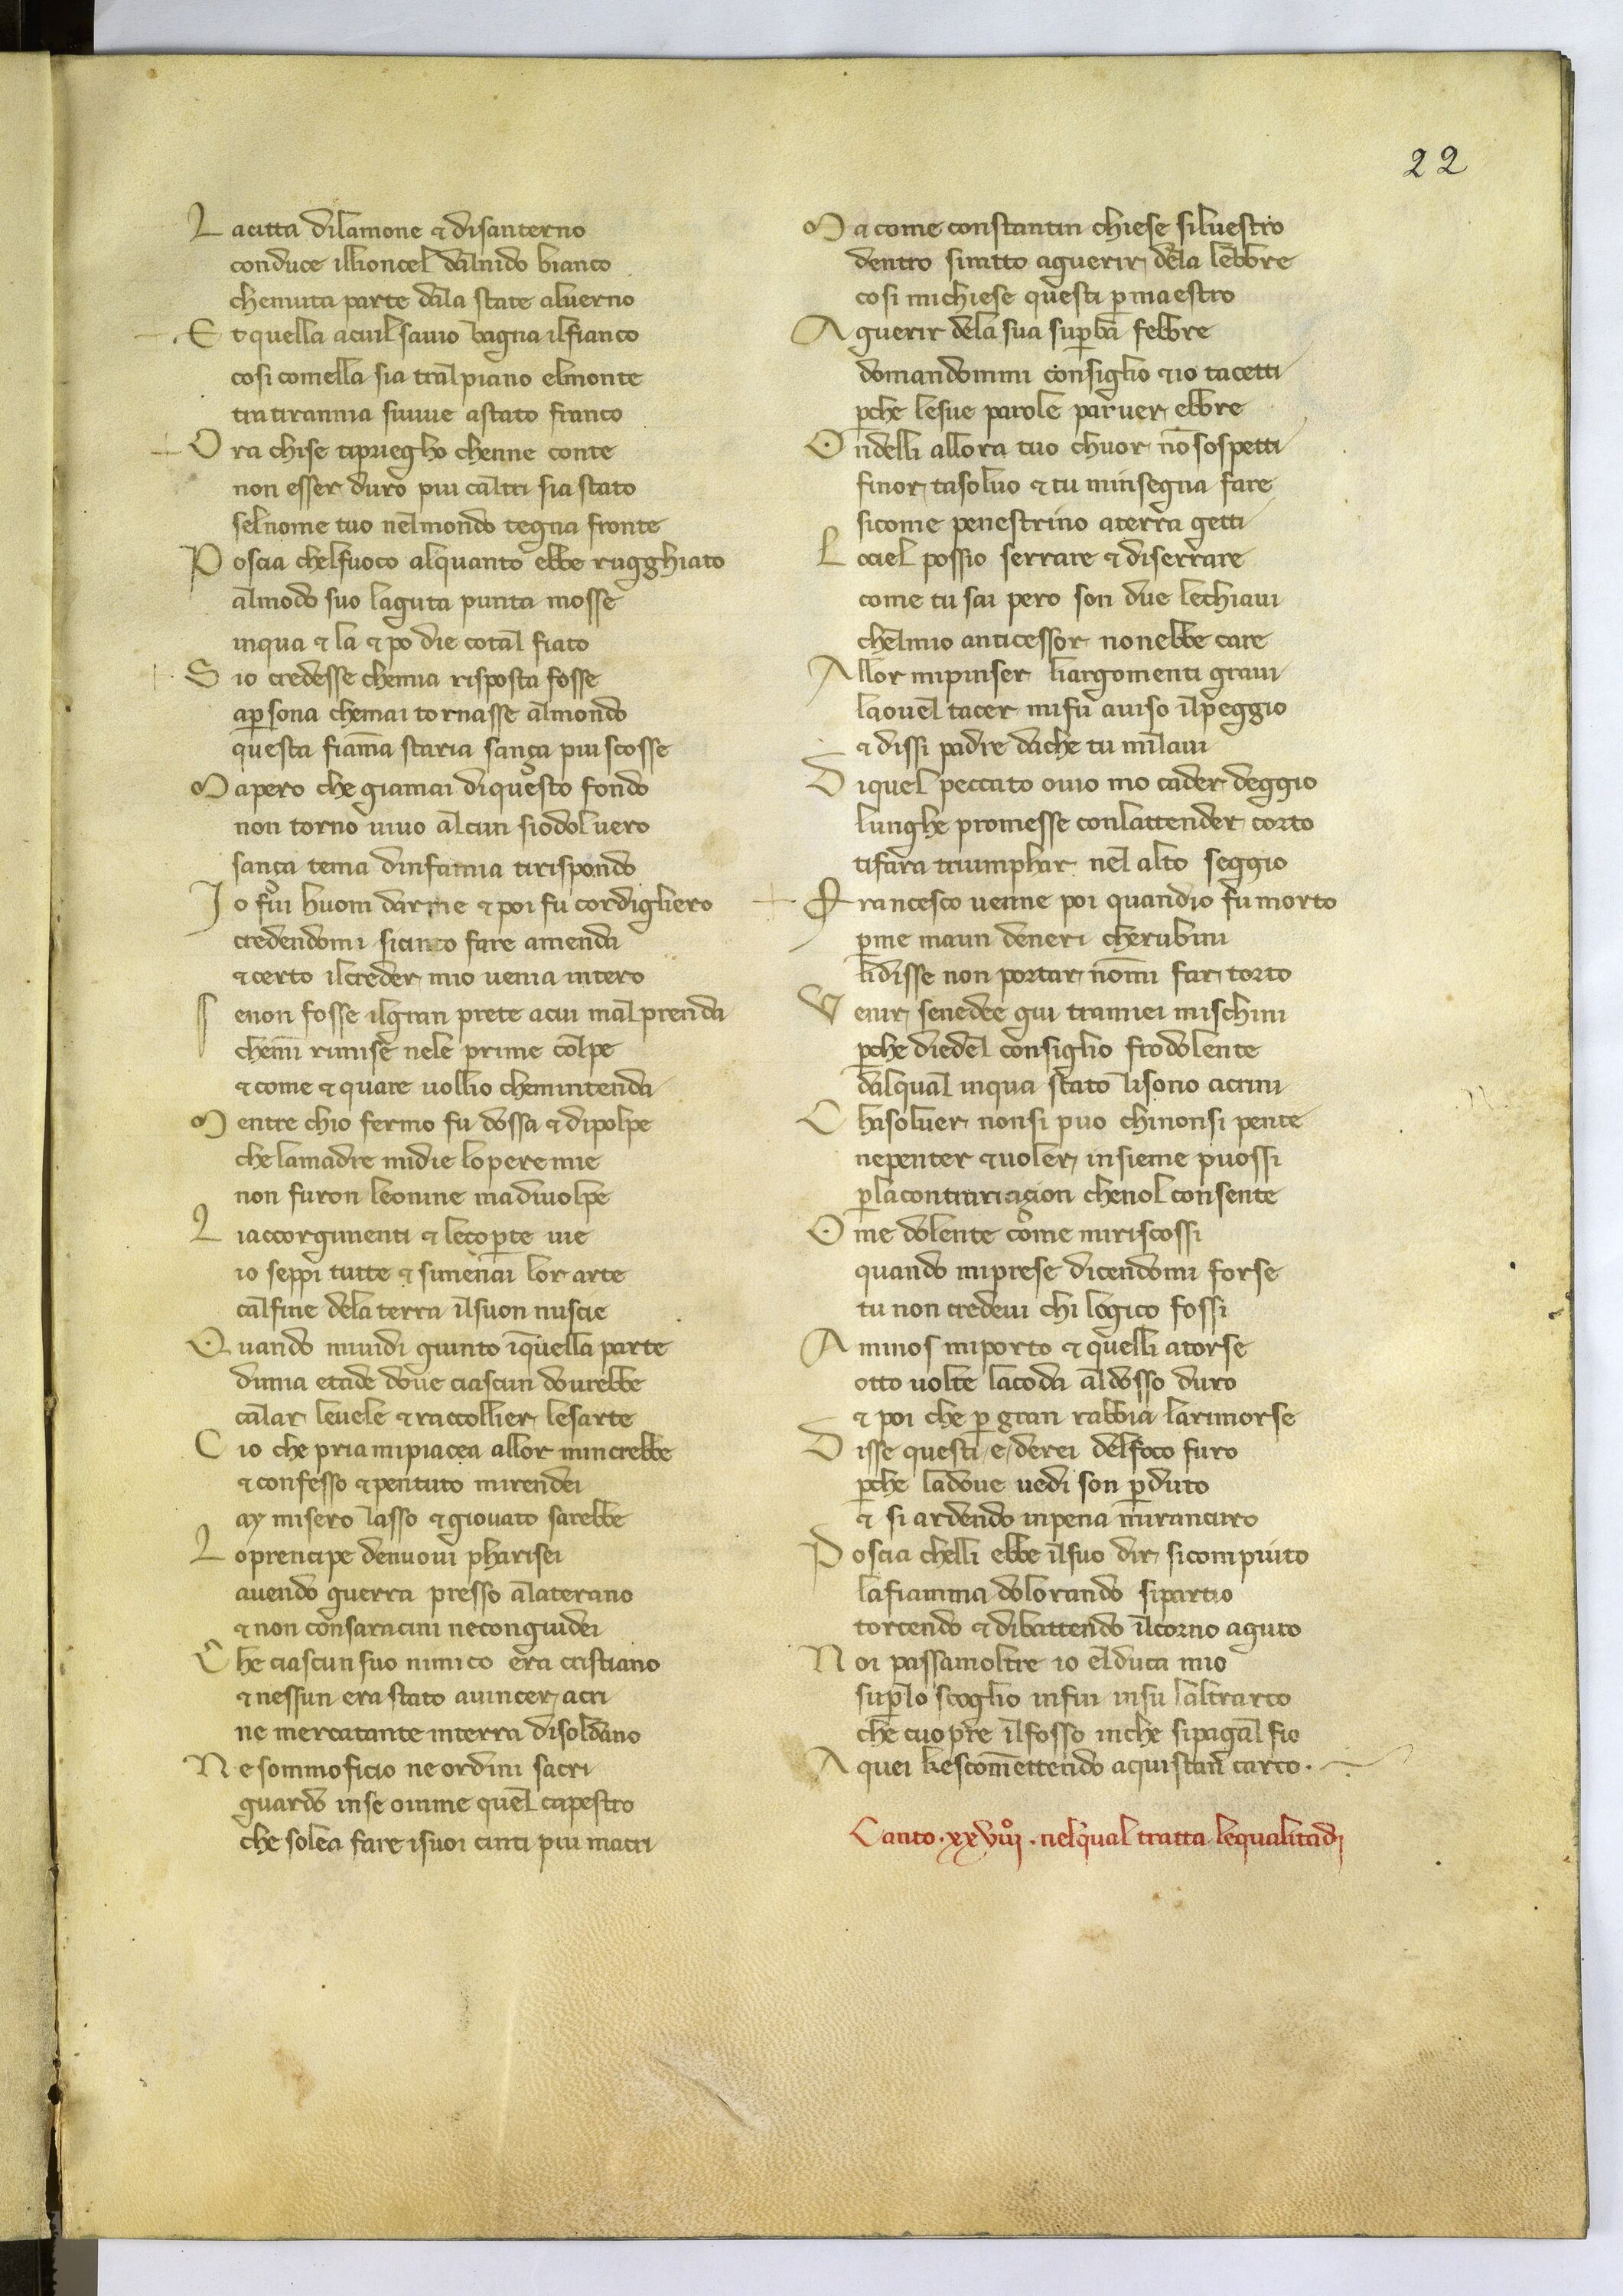 22
Lacitta dilamone ⁊ disanterno
conduce illioncel dalnido bianco
chemuta parte dala state aluerno
Et quella acuil sauio bagna ilfianco
cosi comella sia tralpiano elmonte
tra tirannia siuiue astato franco
Ora chise tipriegho chenne conte
non esser duro piu caltri sia stato
selnome tuo nelmondo tegna fronte
Poscia chelfuoco alquanto ebbe rugghiato
almodo suo laguta punta mosse
inqua ⁊ la ⁊ po die cotal fiato
Sio credesse chemia risposta fosse
aꝑsona chemai tornasse almondo
questa fiam̄a staria sança piu scosse
Mapero che giamai diquesto fondo
non torno uiuo alcun siodol uero
sança tema dinfamia tirispondo
Io fui huom darme ⁊ poi fu cordigliero
credendomi sicinto fare amenda
⁊ certo ilcreder mio uenia intero
Senon fosse ilgran prete acui mal prenda
chem̄i rimise nele prime colpe
⁊ come ⁊ quare uollio chemintenda
Mentre chio fermo fu dossa ⁊ dipolpe
che lamadre midie lopere mie
non furon leonine madiuolpe
Liaccorgimenti ⁊ lecoꝑte uie
io seppi tutte ⁊ simenai lor arte
calfine dela terra ilsuon nuscie
Quando miuidi giunto īquella parte
dimia etade doue ciascun dourebbe
calar leuele ⁊ raccollier lesarte
Cio che pria mipiacea allor mincrebbe
⁊ confesso ⁊ pentuto mirendei
ay misero lasso ⁊ giouato sarebbe
Loprencipe denuoui pharisei
auendo guerra presso alaterano
⁊ non consaracini necongiudei
Che ciascun suo nimico era cristiano
⁊ nessun era stato auincer acri
ne mercatante interra disoldano
Ne sommoficio ne ordini sacri
guardo inse oinme quel capestro
che solea fare isuoi cinti piu macri
Ma come constantin chiese siluestro
dentro siratto aguerir dela lebbre
cosi michiese questi ꝑ maestro
Aguerir dela sua suꝑba febbre
domandommi consiglio ⁊ io tacetti
ꝑche lesue parole paruer ebbre
Ondelli allora tuo chuor nō sospetti
finor tasoluo ⁊ tu minsegna fare
sicome penestrino aterra getti
Lo ciel possio serrare ⁊ diserrare
come tu sai pero son due lechiaui
chelmio anticessor nonebbe care
Allor mipinser liargomenti graui
laouel tacer mifu auiso ilpeggio
⁊ dissi padre dache tu milaui
Diquel peccato ouio mo cader deggio
lunghe promesse conlattender corto
tifara triumphar nel alto seggio
Francesco uenne poi quandio fu morto
ꝑme maun deneri cherubini
lidisse non portar nom̄i far torto
Venir senedee giu tramiei mischini
ꝑche diedel consiglio frodolente
dalqual inqua stato lisono acrini
Chasoluer nonsi puo chinonsi pente
nepenter ⁊ uoler insieme puossi
ꝑlacontraricion chenol consente
Ome dolente come miriscossi
quando miprese dicendomi forse
tu non credeui chi logico fossi
Aminos miporto ⁊ quelli atorse
otto uolte lacoda aldosso duro
⁊ poi che ꝑ gran rabbia larimorse
Disse questi e derei delfoco furo
ꝑche ladoue uedi son ꝑduto
⁊ si ardendo inpena mirancuro
Poscia chelli ebbe ilsuo dir sicompiuto
lafiamma dolorando sipartio
torcendo ⁊ dibattendo ilcorno aguto
Noi passamoltre io elduca mio
suꝑlo scoglio infin insu laltrarco
che cuopre ilfosso inche sipagal fio
Aquei kescom̄ettendo aquistan carco.
Canto .xxviiiº. nelqual tratta lequalitadi